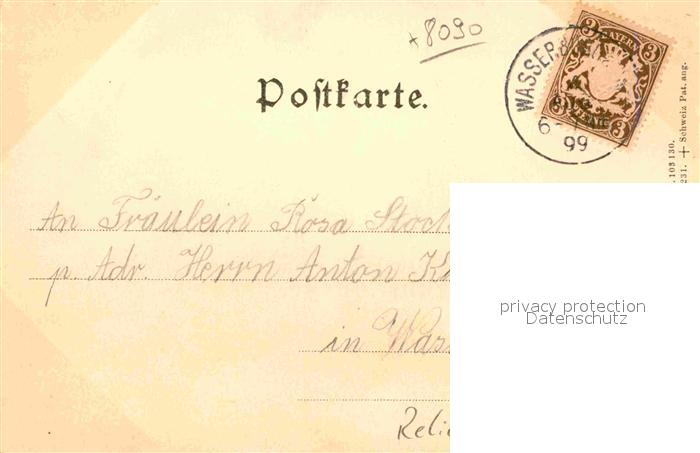 *8090
Postkarte.
BAYERN
3 3
3 3
WASSERB
6-
99
103 130.
231. + Schweiz Pat. ang.
An Fräulein Rosa Stock
p. Adr. Herrn Anton K
in Wass
Relie
privacy protection
Datenschutz